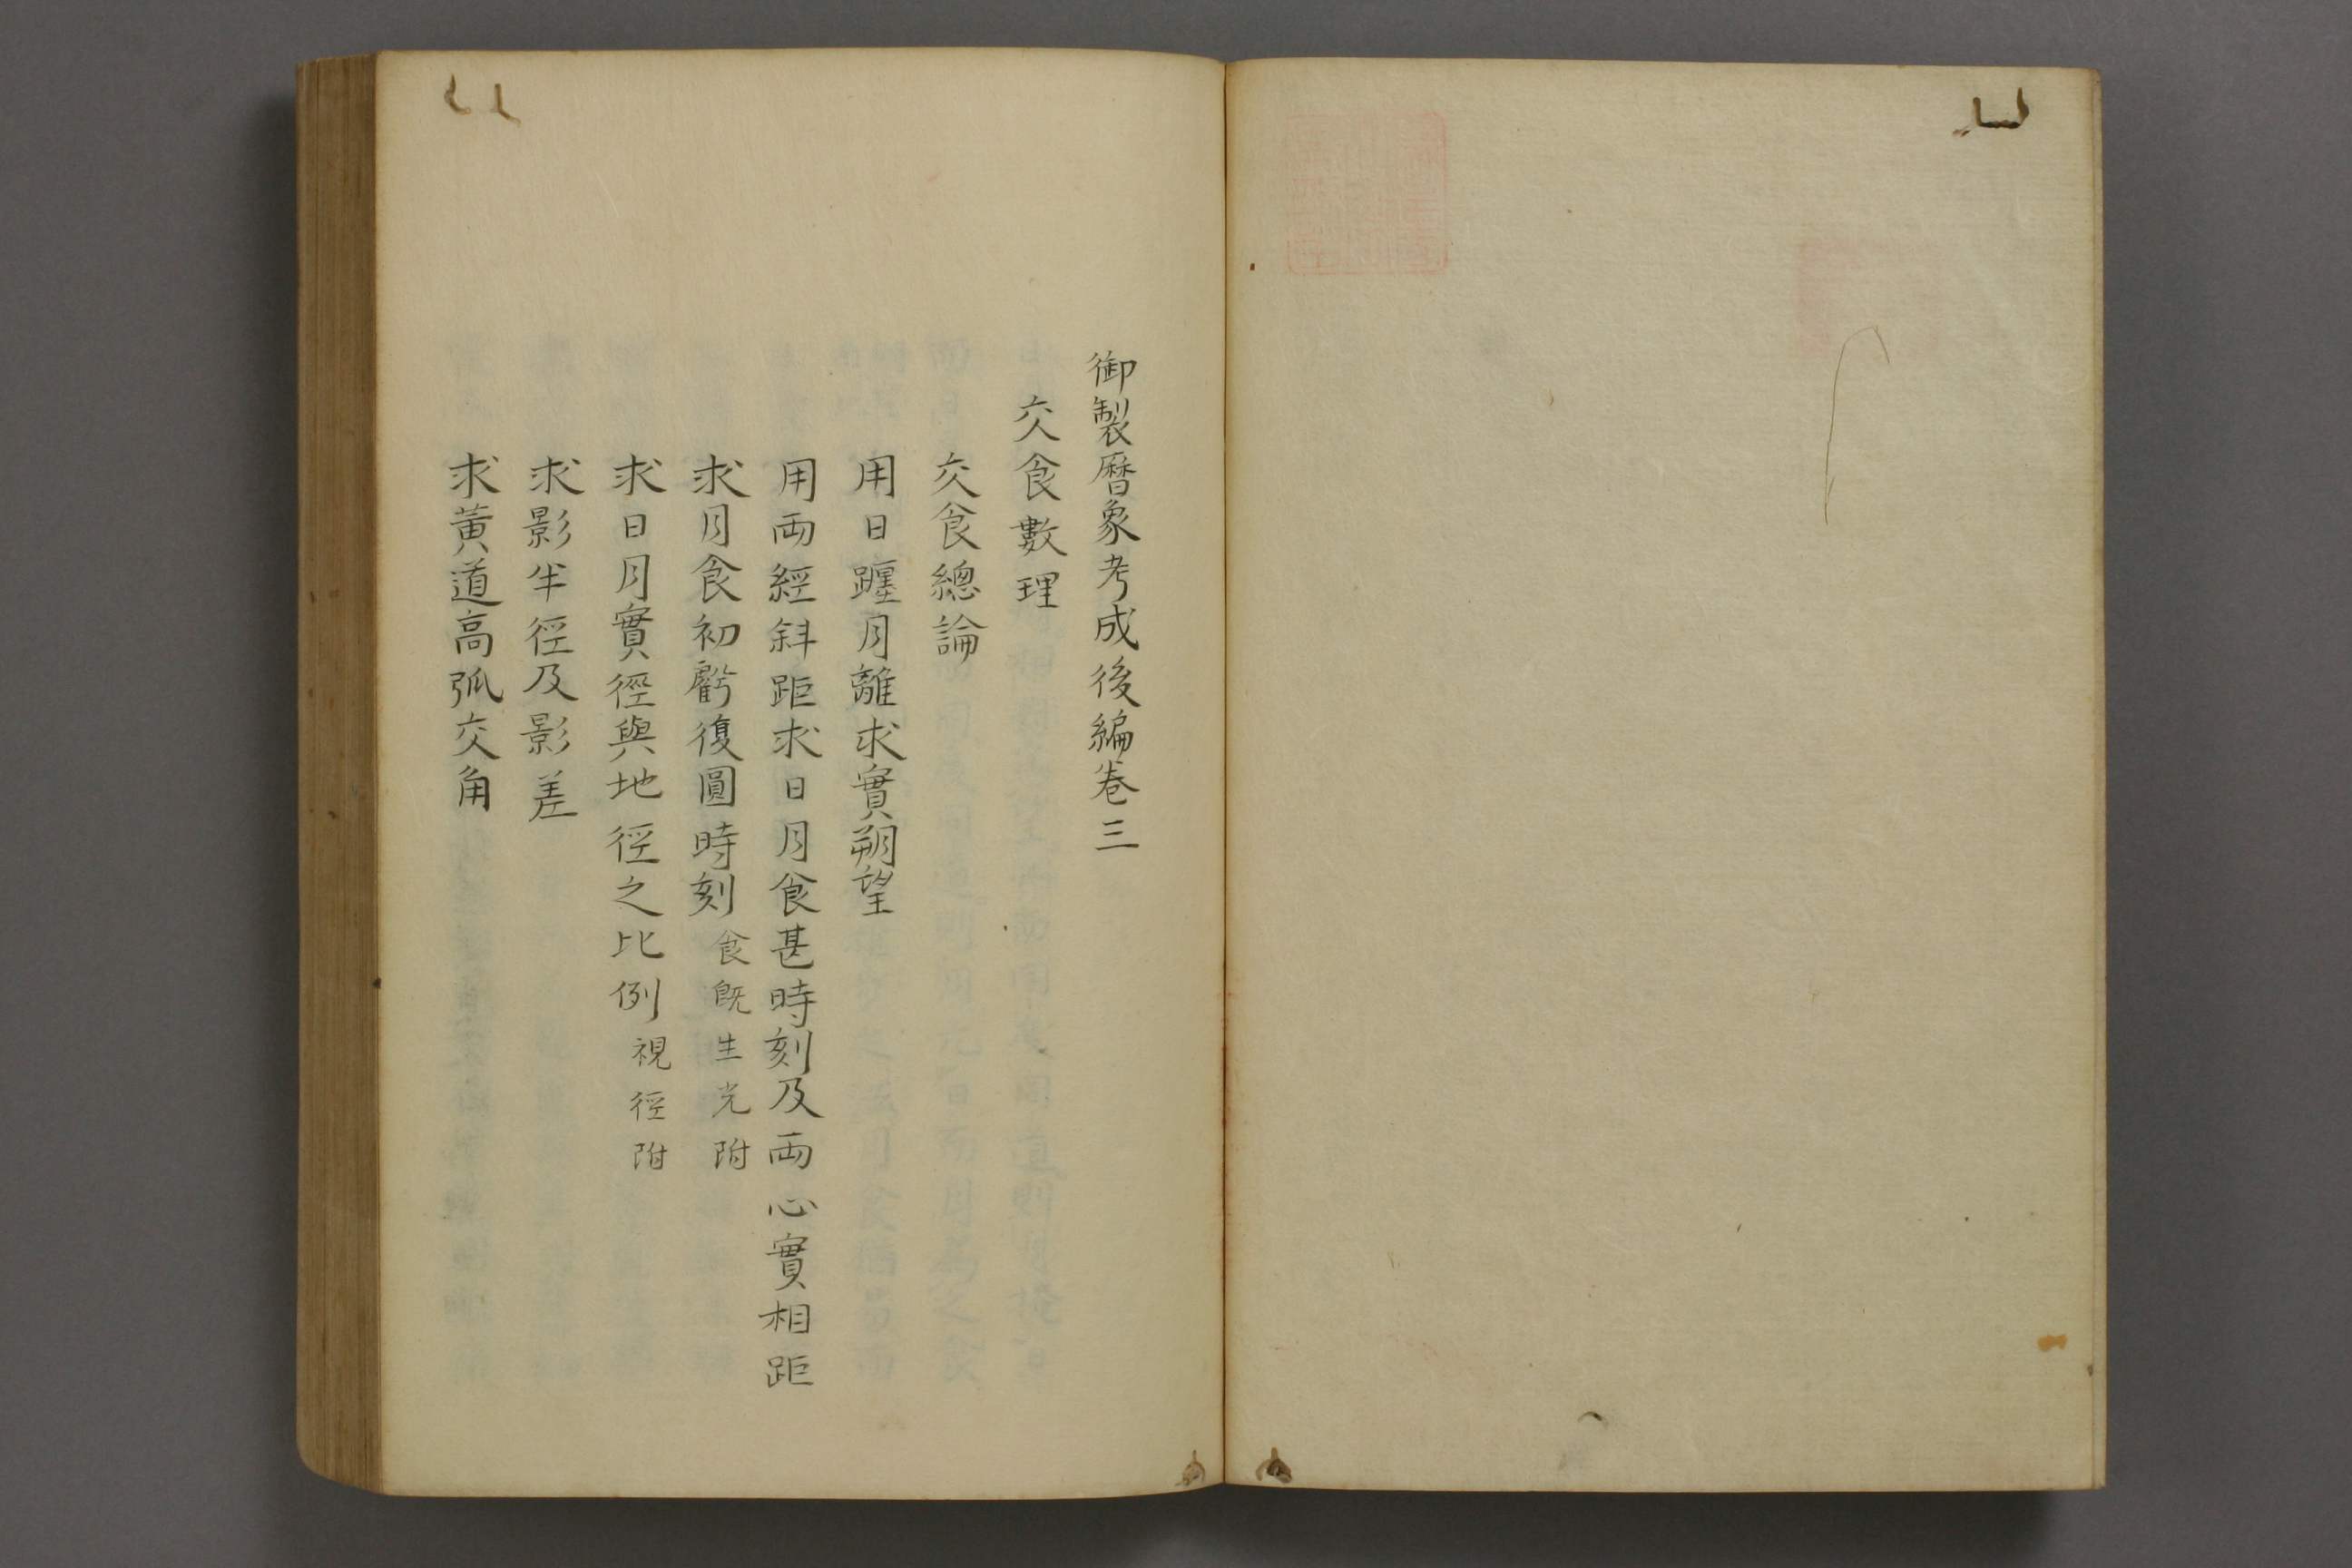 御製曆象考成後編卷三
交食數理
交食總論
用日躔月離求實朔望
用両經斜距求日月食甚時刻及両心實相距
求月食初虧復圓時刻食既生光附
求日月實徑與地徑之比例視徑附
求影半徑及影差
求黃道高弧交角